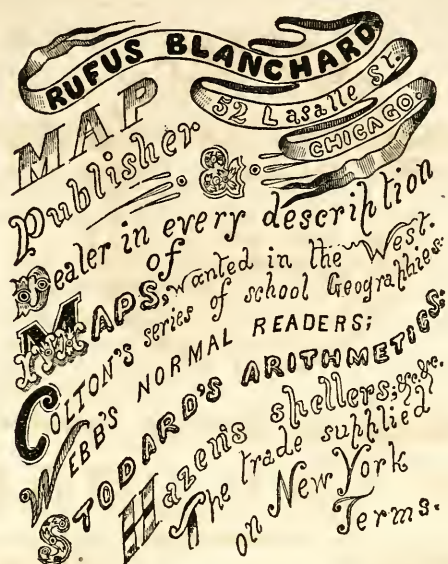 RUFUS BLANCHARD
52 Lasalle St.
CHICAGO.
MAP
Publisher &
Dealer in every description
of
MAPS, wanted in the West.
COLTON'S series of school Geographies:
WEBB'S NORMAL READERS;
STODARD'S ARITHMETICS.
Hazen's shellers; &c. &c.
The trade supplied
on New York
Terms.